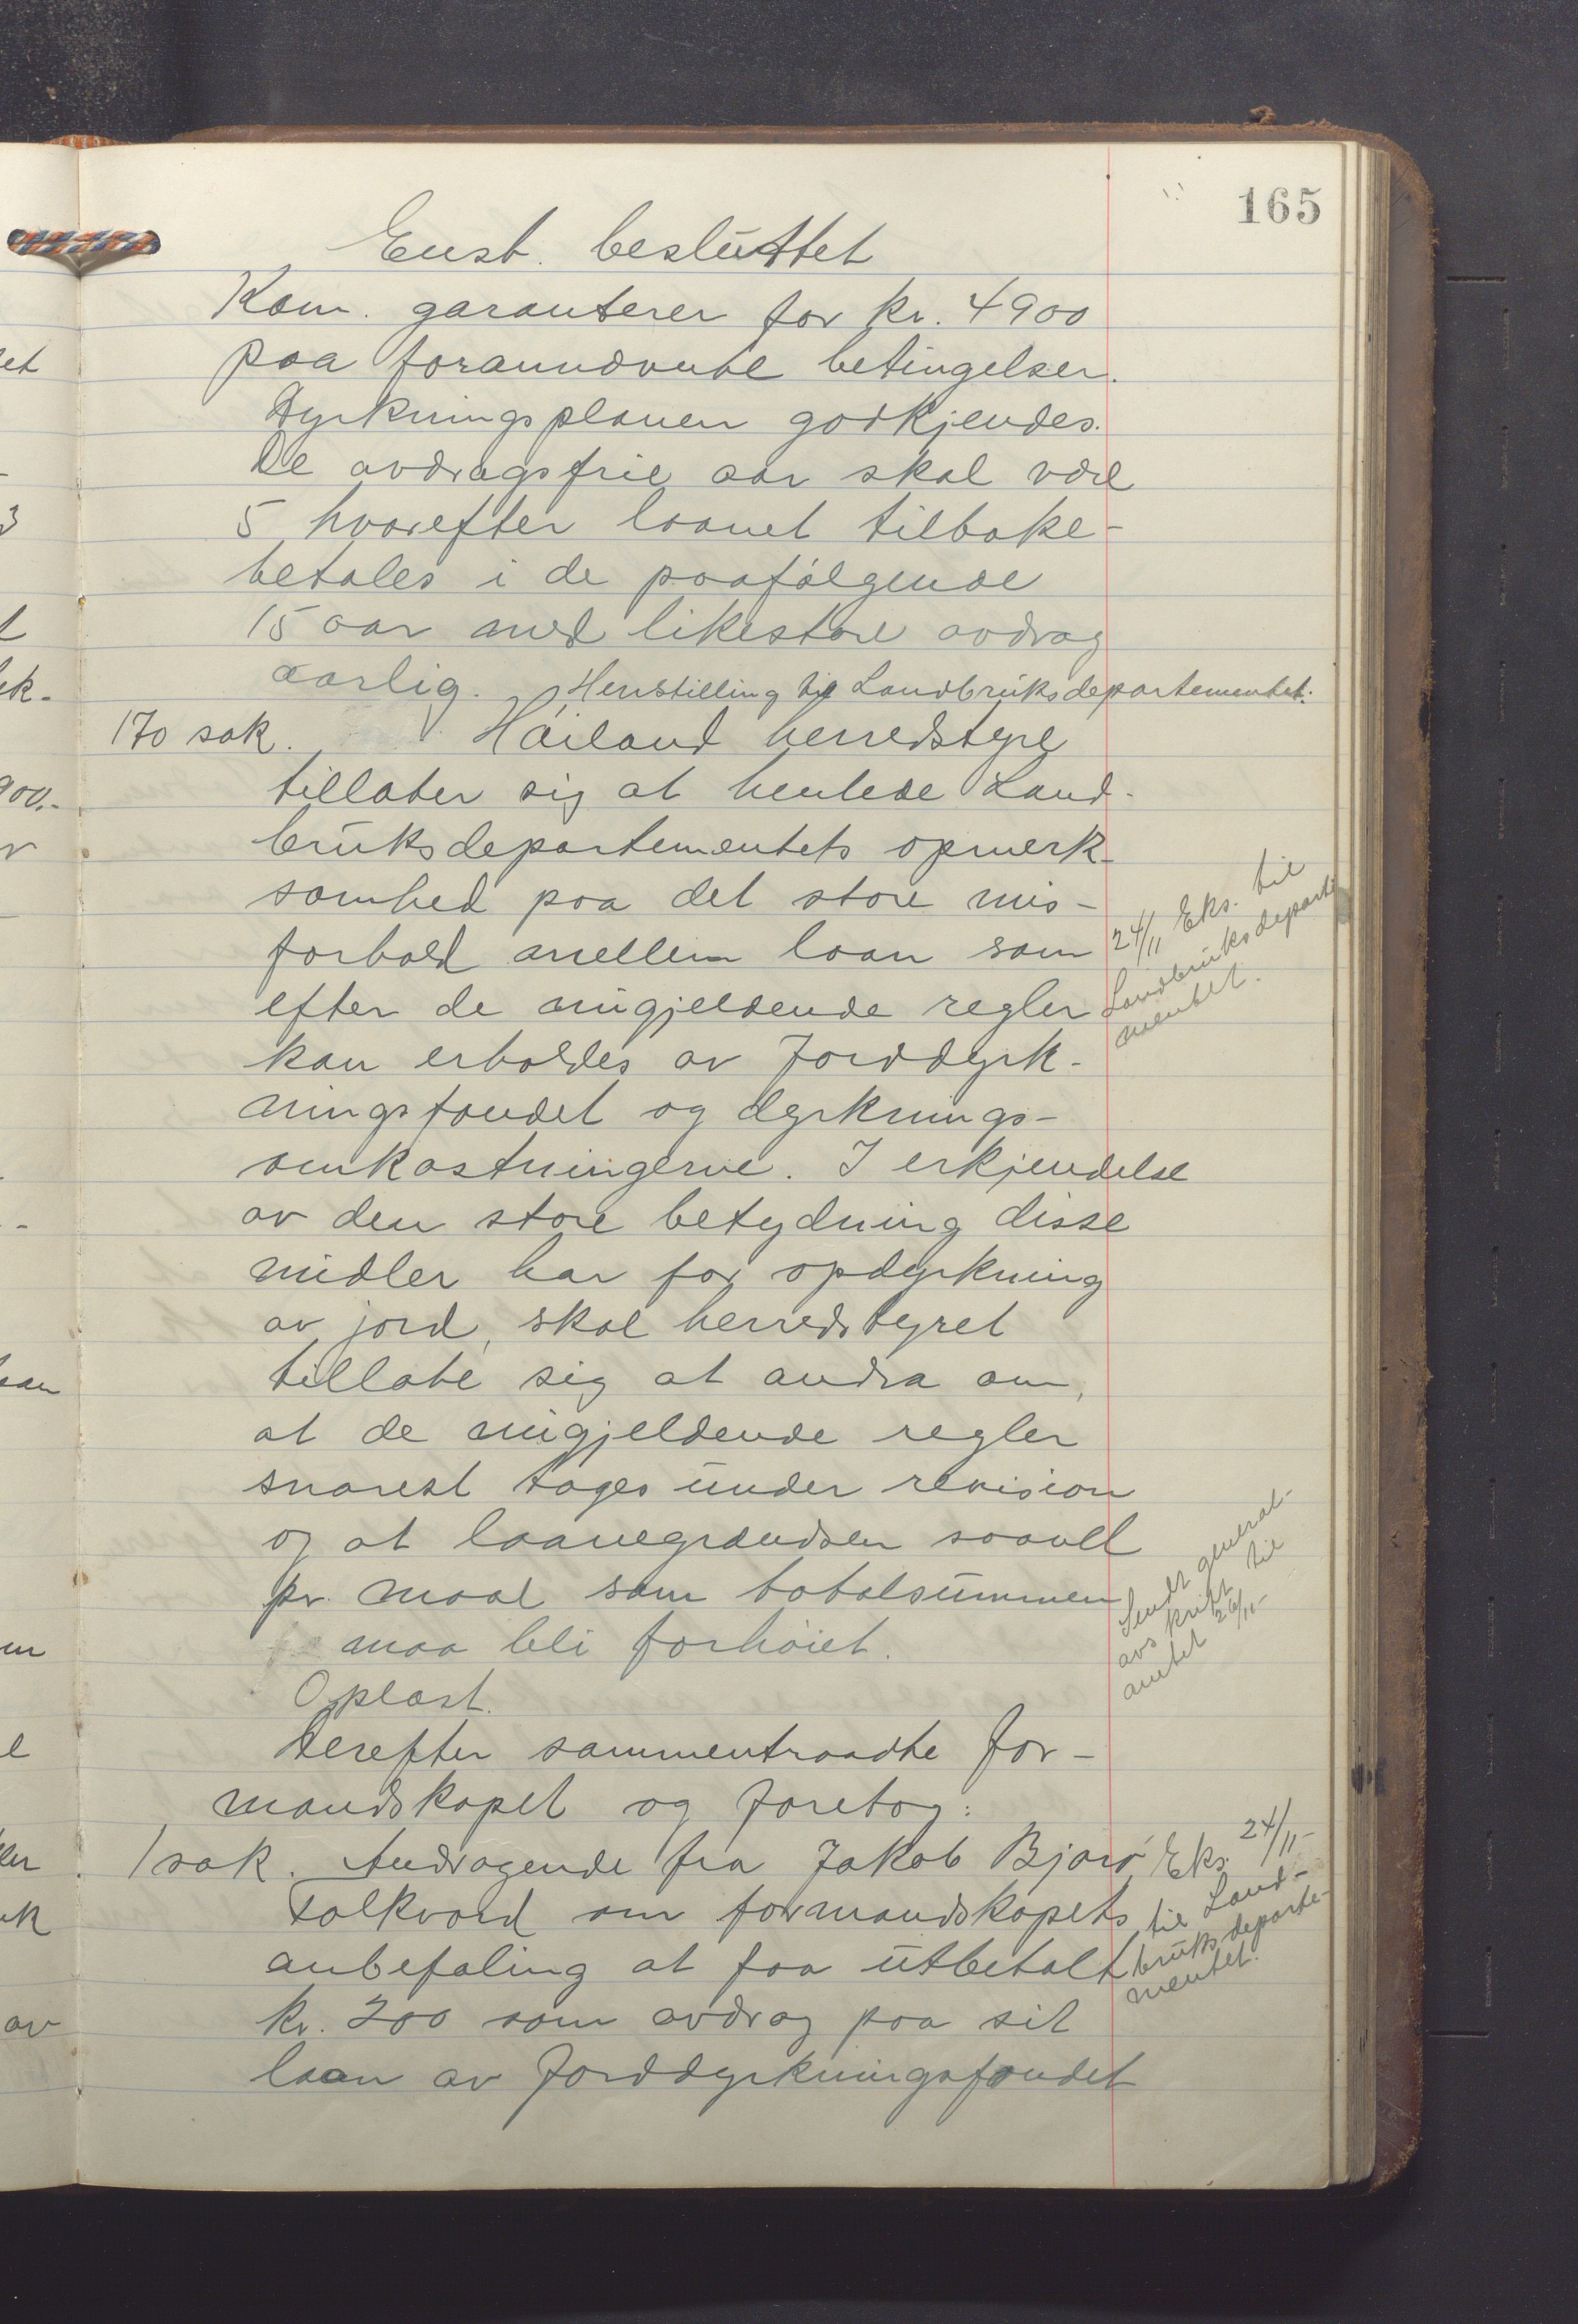 165
Enst. besluttet
Kom. garanterer for kr. 4900
paa forannævnte betingelser.
Dyrkningsplanen godkjendes.
De avdragsfrie aar skal være
5 hvorefter laanet tilbake-
betales i de paafølgende
15 aar med likestore avdrag
aarlig. Henstilling til Landbruksdepartementet:
170 sak. Høiland herredstyre
tillater sig at henlede Land-
bruksdepartementets opmerk-
somhed paa det store mis-
forhold mellem laan som
efter de nugjeldende regler
kan erholdes av Jorddyrk-
ningsfondet og dyrknings-
omkostningerne. I erkjendelse
av den store betydning disse
midler har for opdyrkning
av jord, skal herredstyret
tillate sig at andra om,
at de nugjeldende regler
snarest tages under revision
og at laanegrændsen saavel
pr. maal som totalsummen
maa bli forhøiet.
Oplæst.
Derefter sammentraadte for-
mandskapet og foretog:
1 sak. Andragende fra Jakob Bjorø
Folkvord om formandskapets
anbefaling at faa utbetalt
kr. 200 som avdrag paa sit
laan av Jorddyrkningsfondet
24/11 Eks. til
Landbruksdeparte
mentet.
Sendt generel-
avskrift til
amtet 26/11-
Eks. 24/11-
til Land-
bruksdeparte-
mentet.